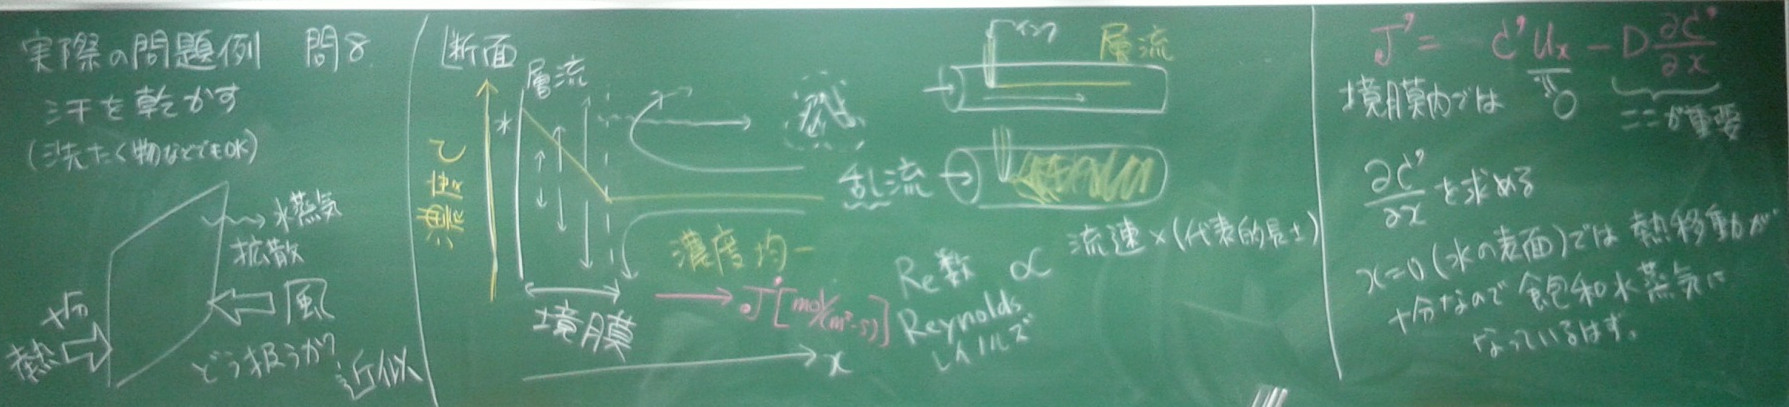 実際の問題例 問8
汗を乾かす
(洗たく物などでもOK)
水蒸気
拡散
十分
熱
風
どう扱うか?
近似
断面
層流
濃度 C
境膜
濃度均一
J' [mol/(m²·s)]
x
乱流
インク
層流
Re数 ∝ 流速×(代表的長さ)
Reynolds
レイノルズ
J' = C'Ux - D ∂C'/∂x
境膜内では 0
ここが重要
∂C'/∂x を求める
x=0(水の表面)では 熱移動が
十分なので 飽和水蒸気に
なっているはず。